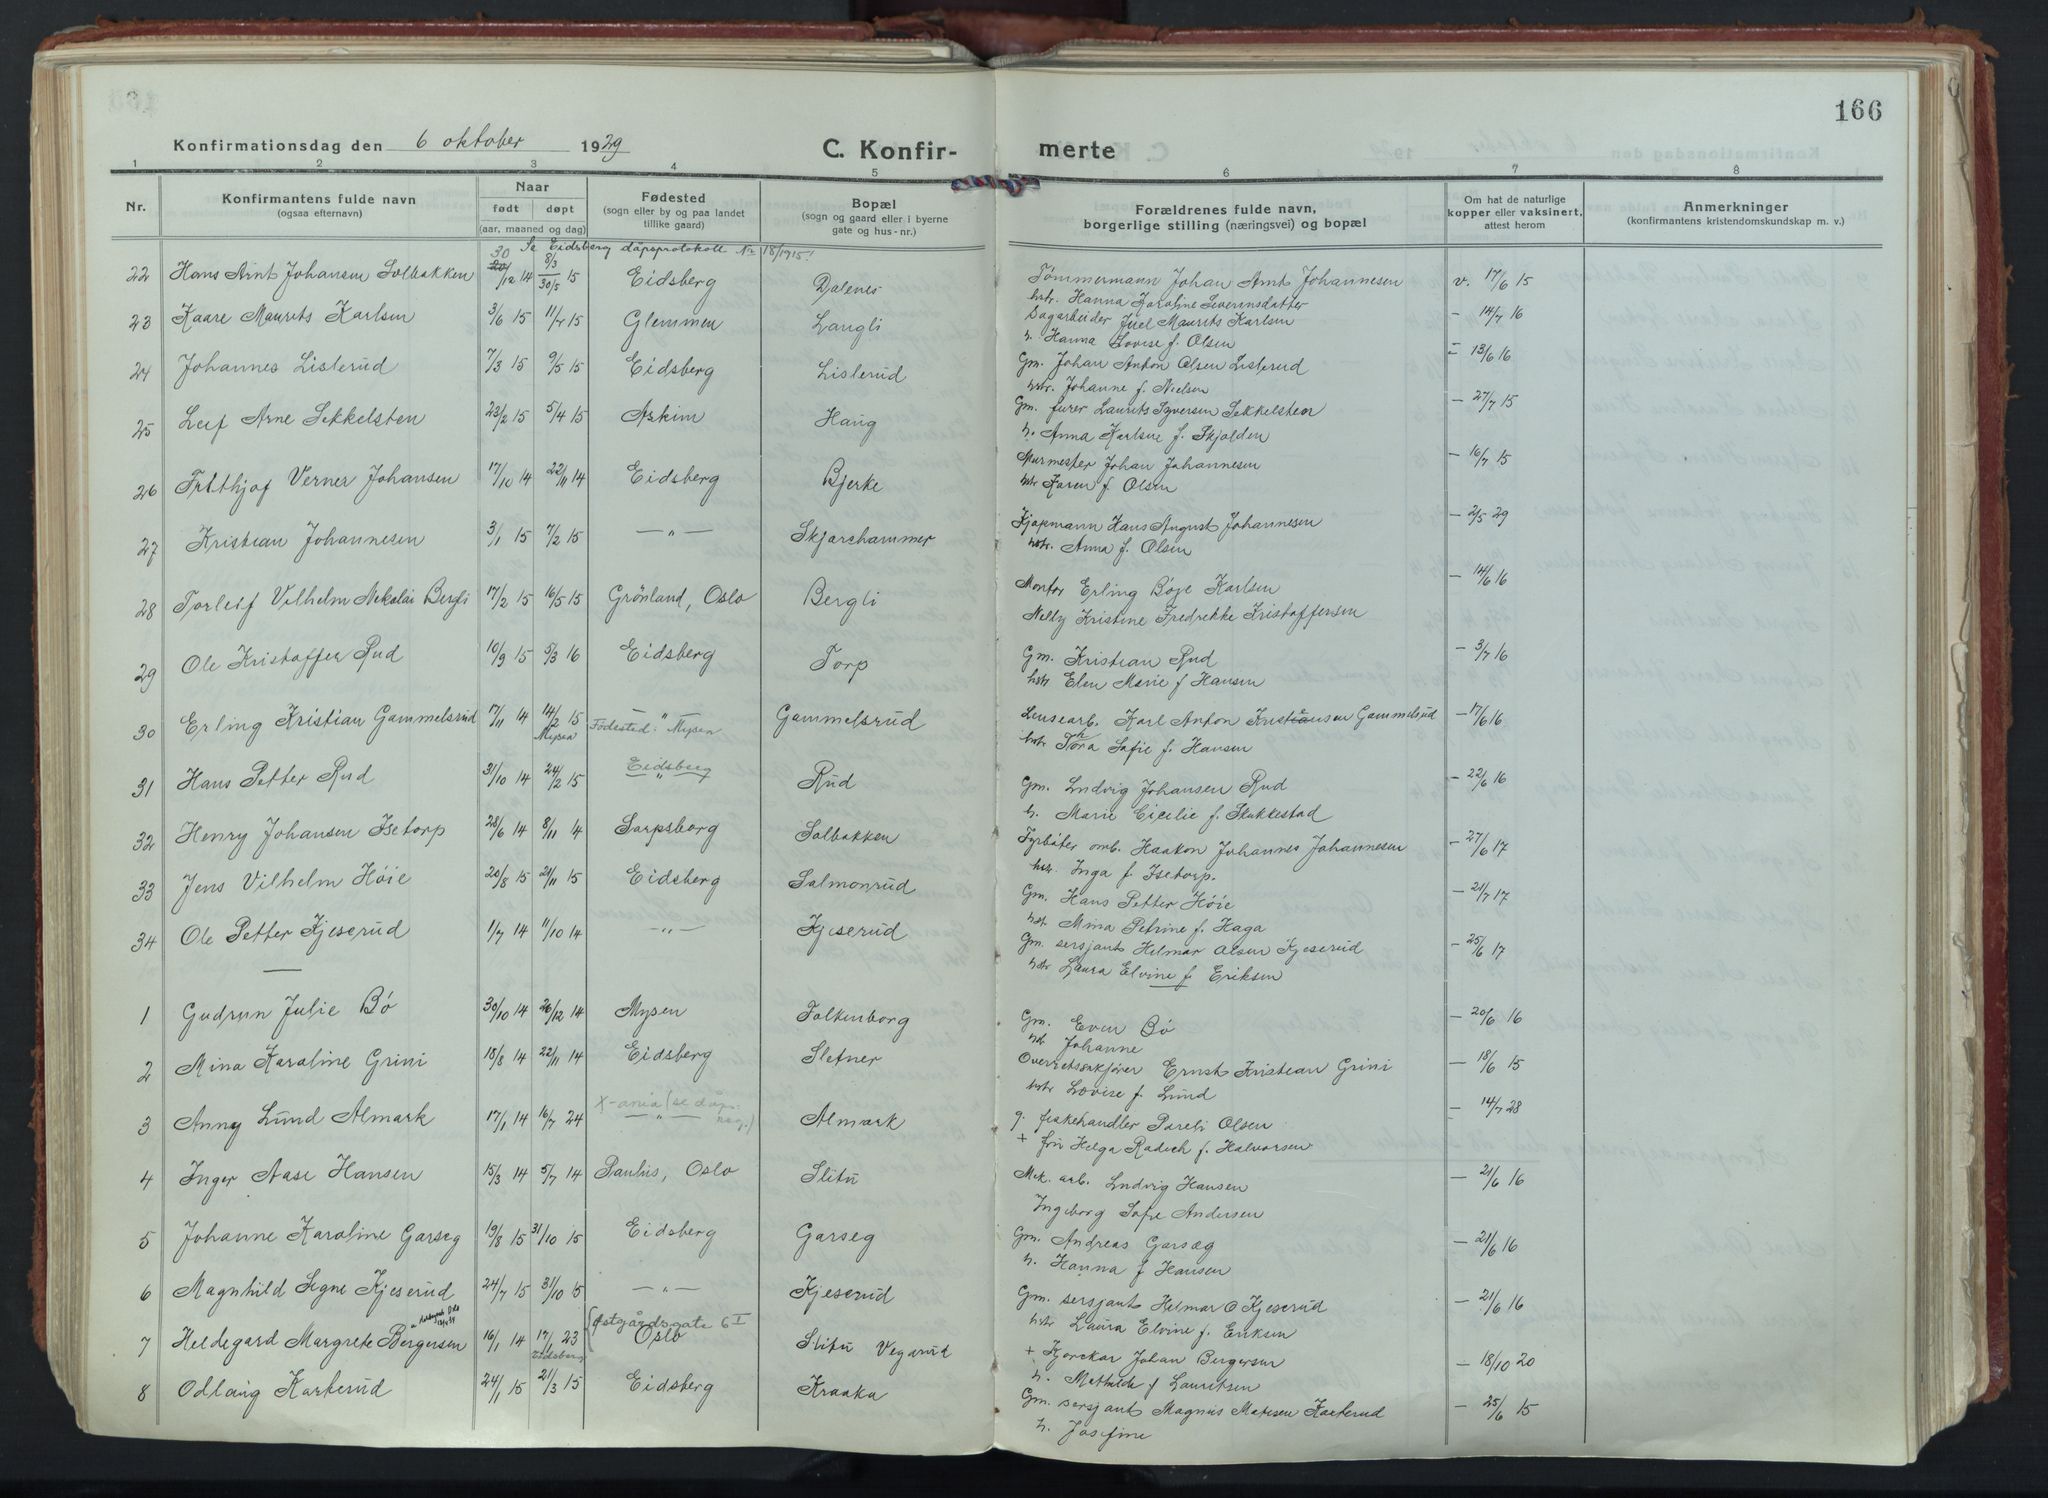 166
Konfirmationsdag den 6 oktober 1929
C. Konfir- merte
1 2 3 4 5 6 7 8
Nr. Konfirmantens fulde navn (ogsaa efternavn) Naar født døpt (aar, maaned og dag) Fødested (sogn eller by og paa landet tillike gaard) Bopæl (sogn og gaard eller i byerne gate og hus-nr.) Forældrenes fulde navn, borgerlige stilling (næringsvei) og bopæl Om hat de naturlige kopper eller vaksinert, attest herom Anmerkninger (konfirmantens kristendomskundskap m. v.)
30 Se Eidsberg dåpsprotokoll Nr 18/1915!
22 Hans Arnt Johansen Solbakken 20/12 14 8/3 30/5 15 Eidsberg Dalenes Tømmermann Johan Arnt Johannesen v. 17/6 15
hstr. Hanna Karoline Severinsdatter
23 Kaare Maurits Karlsen 3/6 15 11/7 15 Glemmen Langli Sagarbeider Juel Maurits Karlsen - 14/7 16
h. Hanna Lovise f. Olsen
24 Johannes Listerud 7/3 15 9/5 15 Eidsberg Listerud Gm. Johan Anton Olsen Listerud - 13/6 16
hstr. Johanne f. Nielsen
25 Leif Arne Sekkelsten 23/2 15 5/4 15 Askim Haug Gm. furer Laurits Iversen Sekkelsten - 27/7 15
h. Anna Karlsine f. Skjolden
26 Fritthjof Verner Johansen 17/10 14 22/11 14 Eidsberg Bjerke Murmester Johan Johannesen - 16/7 15
hstr Karen f. Olsen
27 Kristian Johannesen 3/1 15 7/2 15 -"- Skjærshammer Kjøpmann Hans August Johannesen - 2/5 29
hstr. Anna f. Olsen
28 Torleif Vilhelm Nikolai Bergli 17/2 15 16/5 15 Grønland, Oslo Bergli Montør Erling Bøye Karlsen - 14/6 16
Nelly Kristine Fredrekke Kristoffersen
29 Ole Kristoffer Rud 10/9 15 5/3 16 Eidsberg Torp Gm. Kristian Rud - 3/7 16
hstr Elen Marie f Hansen
30 Erling Kristian Gammelsrud 17/11 14 14/2 15 Mysen -"- Fødested: Mysen Gammelsrud Lensearb. Karl Anton Kristiansen Gammelsrud - 17/6 16
hstr Thora Sofie f. Hansen
31 Hans Petter Rud 31/10 14 24/2 15 Eidsberg -"- Rud Gm. Ludvig Johansen Rud - 22/6 16
h. Marie Cicilie f. Slukkestad
32 Henry Johansen Isetorp 28/6 14 8/11 14 Sarpsborg Solbakken Fyrbøter omb. Haakon Johannes Johannesen - 27/6 17
hstr. Inga f. Isetorp.
33 Jens Vilhelm Høie 20/8 15 21/11 15 Eidsberg Salmonrud Gm. Hans Petter Høie - 21/7 17
hst. Mina Petrine f. Haga
34 Ole Petter Kjeserud 1/7 14 11/10 14 -"- Kjeserud Gm. sersjant Helmar Olsen Kjeserud - 25/6 17
hstr Laura Elvine f Eriksen
1 Gudrun Julie Bø 30/10 14 26/12 14 Mysen Falkenborg Gm. Even Bø - 20/6 16
hst Johanne
2 Mina Karoline Grini 18/8 14 22/11 14 Eidsberg Sletner Overretssakfører Ernst Kristian Grini - 18/6 15
hstr Lovise f. Lund
3 Anny Lund Almark 17/1 14 16/7 24 X-ania (se dåps- reg.) -"- Almark g. fiskehandler Pareli Olsen - 14/7 28
+ fru Helga Radich f. Halvorsen
4 Inger Aase Hansen 15/3 14 5/7 14 Paulus, Oslo Slitu Mek. arb. Ludvig Hansen - 21/6 16
Ingeborg Sofie Andersen
5 Johanne Karoline Garseg 19/8 15 31/10 15 Eidsberg Garseg Gm. Andreas Garsæg - 21/6 16
h. Hanna f Hansen
6 Magnhild Signe Kjeserud 24/7 15 31/10 15 -"- Kjeserud Gm. sersjant Helmar O Kjeserud - 21/6 16
hstr Laura Elvine f. Eriksen
7 Heldegard Margrete Bergersen 16/1 14 17/1 23 Eidsberg Østgårdsgate 6 I Oslo Slitu Vegarud + Kjørekar Johan Bergersen - 18/10 20
h. Mathilde f Lauritsen
8 Odlaug Karterud 24/1 15 21/3 15 Eidsberg Kraaka Gm. sersjant Magnus Matisen Karterud - 25/6 15
h. Josefine